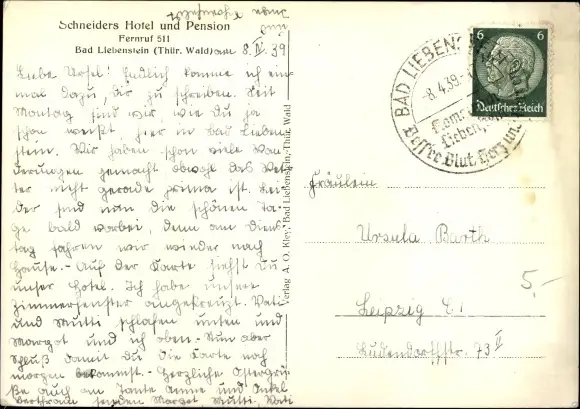 Schneiders Hotel und Pension
Fernruf 511
Bad Liebenstein (Thür. Wald) am 8. IV. 39
Liebe Ursel! Endlich komme ich ein-
mal dazu, Dir zu schreiben. Seit
Montag sind wir, wie Du ja
schon weißt, hier in Bad Lieben-
stein. Wir haben schon viele Wan-
derungen gemacht obwohl das Wet-
ter nicht gerade prima ist. Lei-
der sind nun die schönen Ta-
ge bald vorbei, denn am Diens-
tag fahren wir wieder nach
Hause. - Auf der Karte siehst Du
unser Hotel. Ich habe unsere
Zimmerfenster angekreuzt. Vati
und Mutti schlafen unten und
Margot und ich oben. - Nun aber
Schluß damit Du die Karte noch
morgen bekommst. - Herzliche Ostergrü-
ße auch an Tante Anne und Onkel
senden Margot, Mutti, Vati
und
Verlag A. O. Kley, Bad Liebenstein, Thür. Wald
6 6
Deutsches Reich
BAD LIEBENSTEIN
-8.4.39.-
Herz und
Fräulein
Ursula Barth
Leipzig C 1
Ludendorffstr. 73 II
5,-